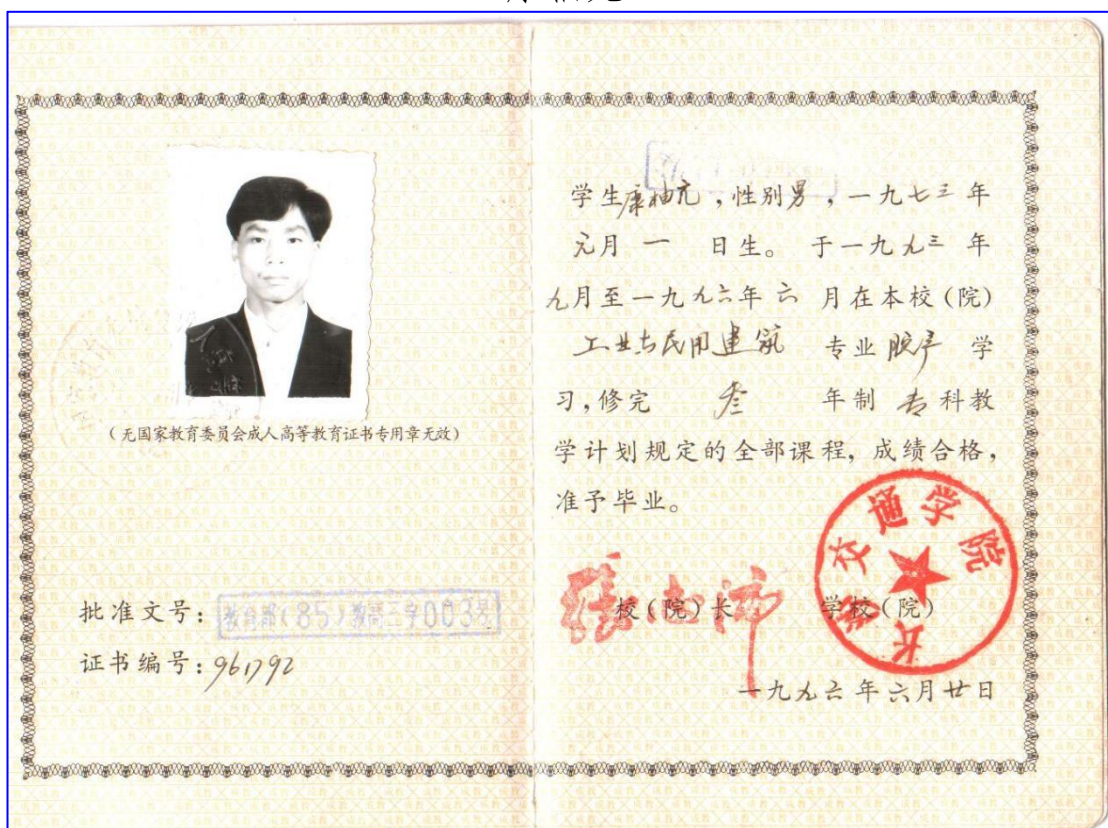 （无国家教育委员会成人高等教育证书专用章无效）
批准文号：教育部(85)教高三字003号
证书编号：961792
学生康柚亢，性别男，一九七三年
元月一日生。于一九九三年
九月至一九九六年六月在本校（院）
工业与民用建筑专业脱产学
习，修完叁年制专科教
学计划规定的全部课程，成绩合格，
准予毕业。
校（院）长 学校（院）
长沙交通学院
一九九六年六月廿日